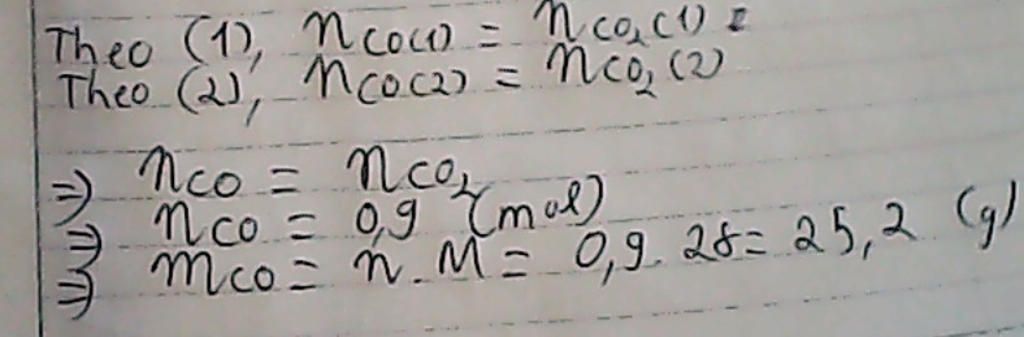 Theo (1), nCO(1) = nCO₂(1)
Theo (2), nCO(2) = nCO₂(2)
=> nCO = nCO₂
=> nCO = 0,9 (mol)
=> mCO = n.M = 0,9.28 = 25,2 (g)